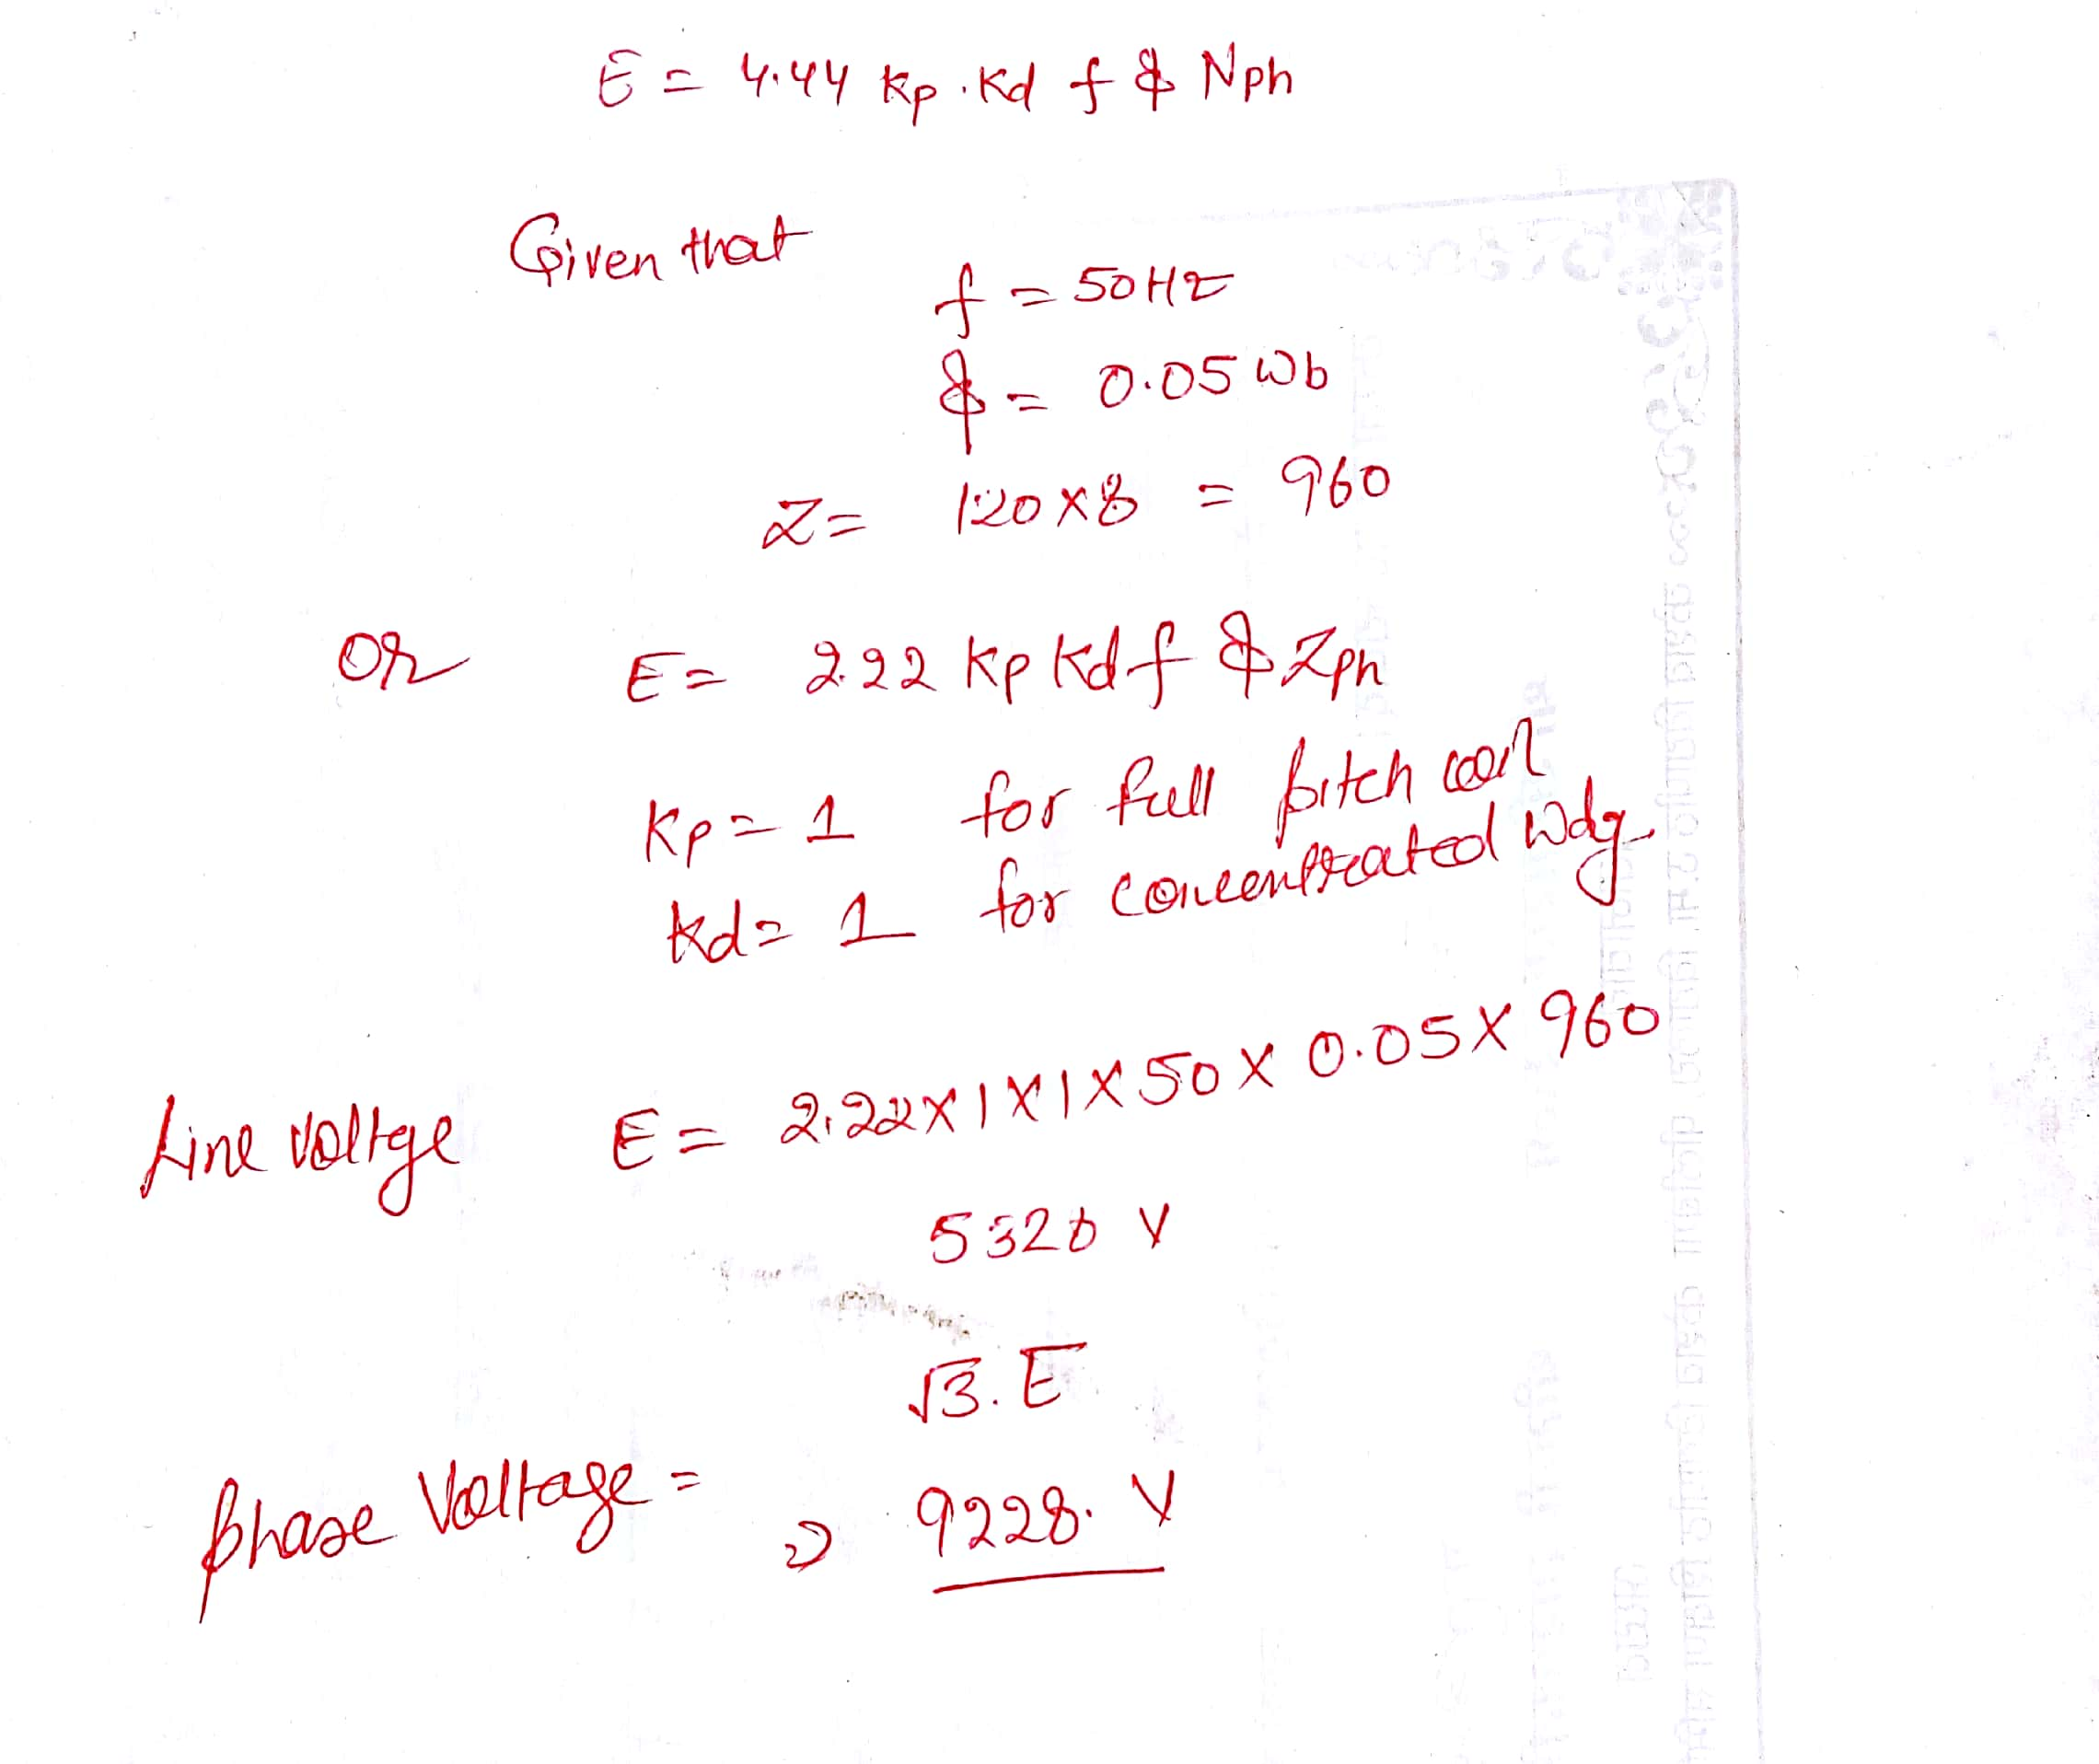 E = 4.44 Kp.Kd f ϕ Nph
Given that
f = 50Hz
ϕ = 0.05 Wb
Z = 120x8 = 960
or E = 2.22 Kp Kd f ϕ Zph
Kp = 1 for full pitch coil
Kd = 1 for concentrated Wdg.
Line voltge E = 2.22x1x1x50x0.05x960
5328 V
√3.E
phase Voltage =
⇒ 9228. V